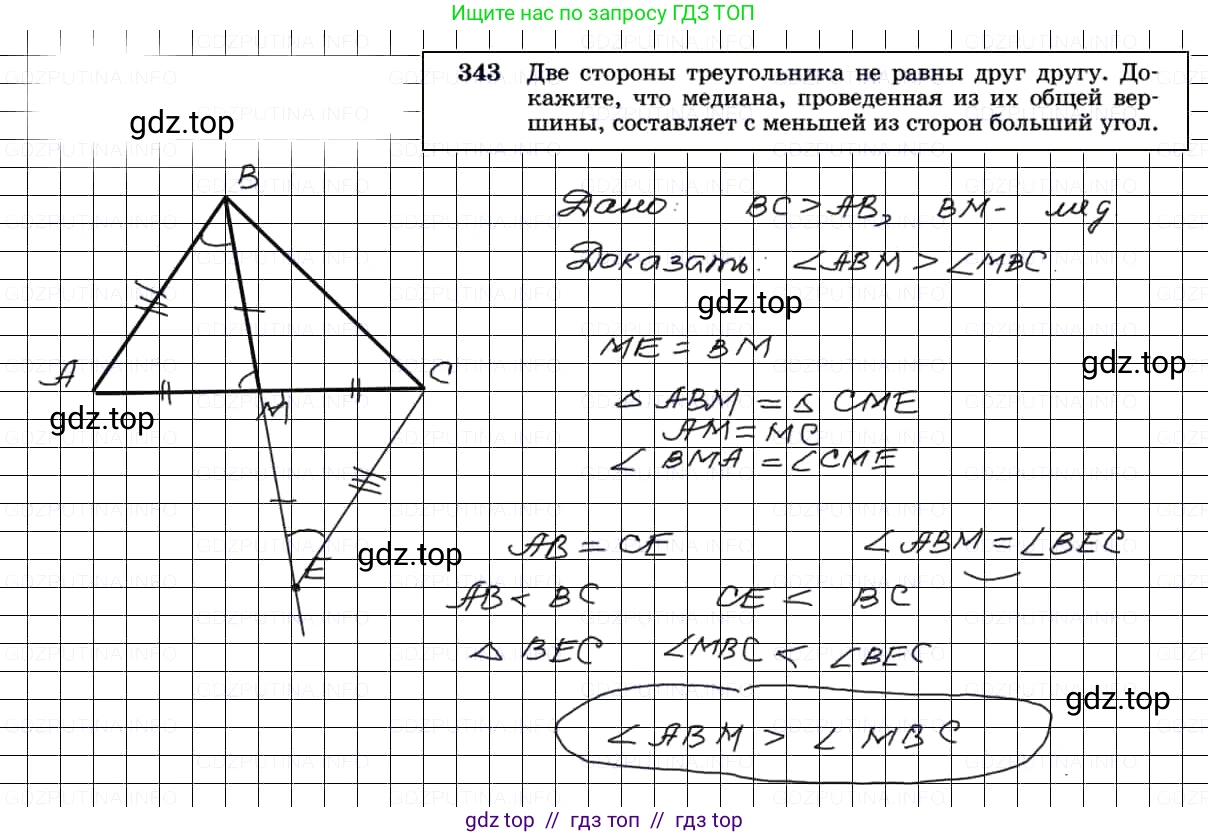 Ищите нас по запросу ГДЗ ТОП
343 Две стороны треугольника не равны друг другу. До-
кажите, что медиана, проведенная из их общей вер-
шины, составляет с меньшей из сторон больший угол.
gdz.top
B
Дано: BC > AB, BM - мед.
Доказать: ∠ABM > ∠MBC.
gdz.top
ME = BM
gdz.top
A
C
M
gdz.top
△ ABM = △ CME
AM = MC
∠ BMA = ∠CME
AB = CE ∠ABM = ∠BEC
gdz.top
E
AB < BC CE < BC
△ BEC ∠MBC < ∠BEC
gdz.top
∠ ABM > ∠ MBC
gdz.top // гдз топ // gdz top
GDZPUTINA.INFO